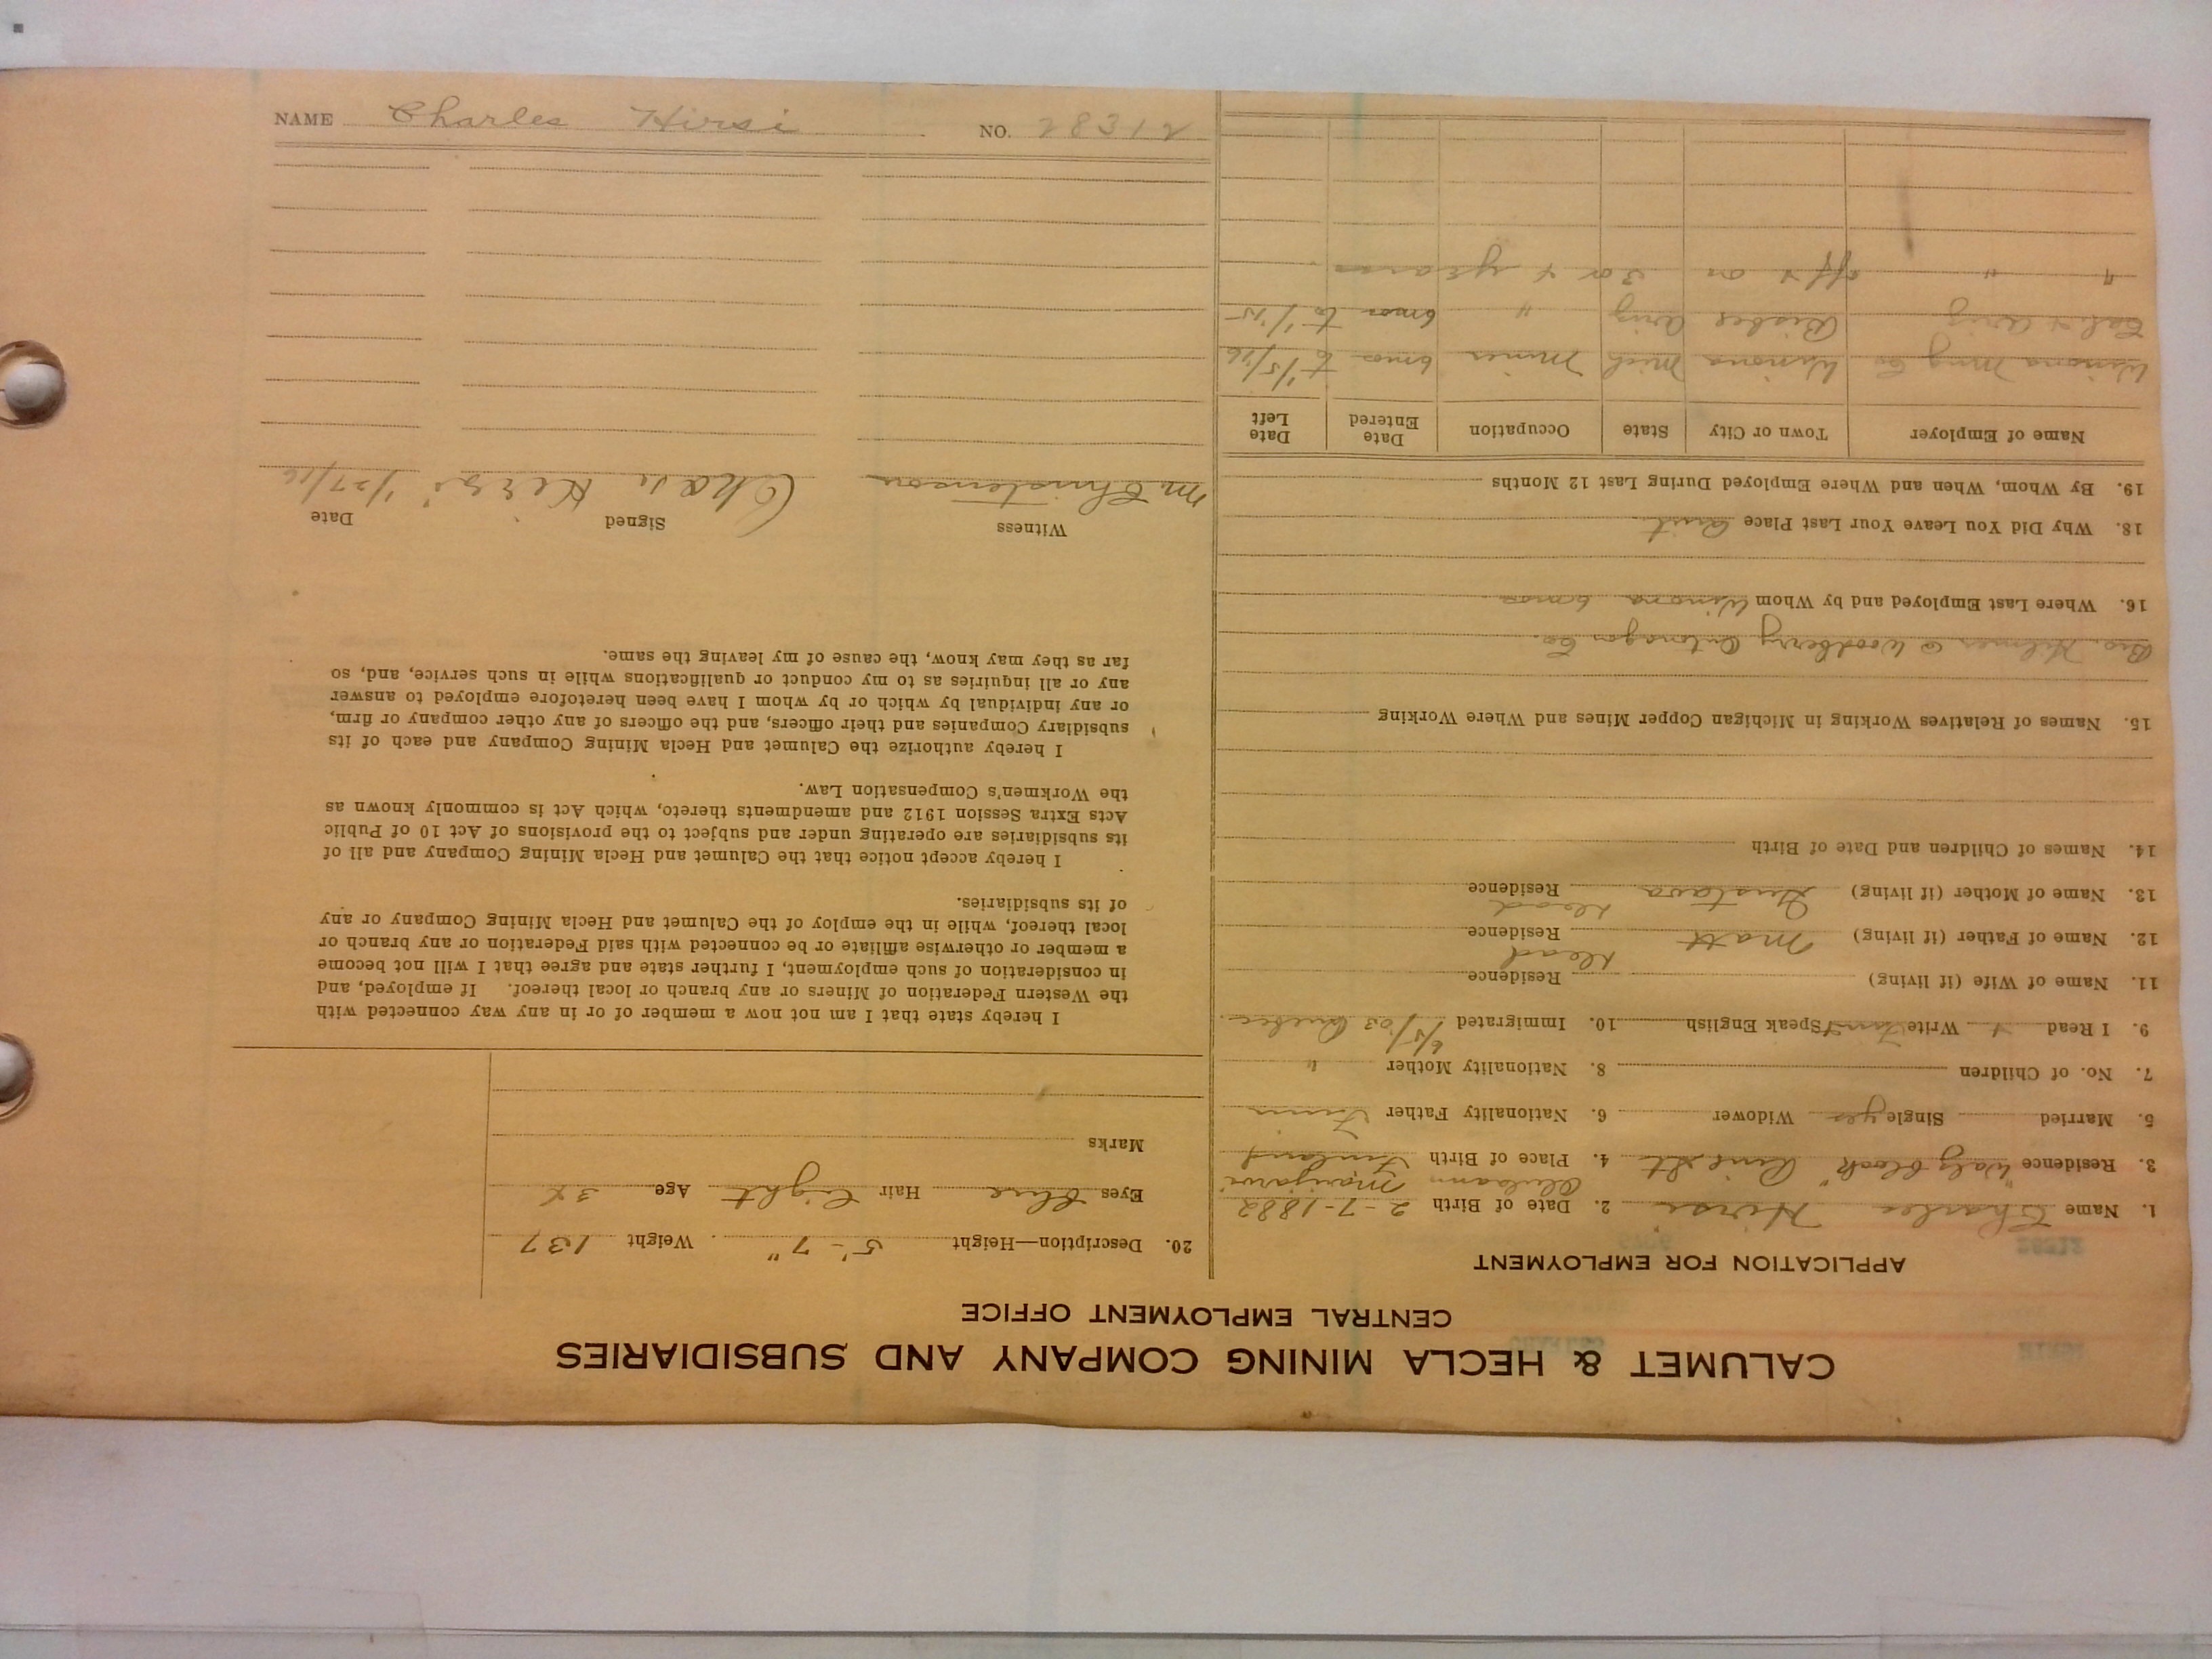 CALUMET & HECLA MINING COMPANY AND SUBSIDIARIES
CENTRAL EMPLOYMENT OFFICE
APPLICATION FOR EMPLOYMENT
1. Name Charles Hirsi 2. Date of Birth 2-7-1882
3. Residence "Waly block" Pine St. 4. Place of Birth Finland
5. Married Single yes Widower 6. Nationality Father Finn
7. No. of Children 8. Nationality Mother "
9. I Read + Write Finn Speak English 10. Immigrated 6/5/03 Quebec
11. Name of Wife (if living) Residence
12. Name of Father (if living) Matt Residence dead
13. Name of Mother (if living) Gustava Residence dead
14. Names of Children and Date of Birth
15. Names of Relatives Working in Michigan Copper Mines and Where Working
Bro. Hilmer @ Woodberry Ontonagon Co.
16. Where Last Employed and by Whom Winona 6mos
18. Why Did You Leave Your Last Place Quit
19. By Whom, When and Where Employed During Last 12 Months
Name of Employer Town or City State Occupation Date Entered Date Left
Winona Mng Co Winona Mich Miner 6mos to 1/15/16
Cal. & Ariz Bisbee Ariz " 6mos to 1/15
" " off & on 3 or 4 years.
20. Description—Height 5'-7" Weight 137
Eyes blue Hair light Age 34
Marks
I hereby state that I am not now a member of or in any way connected with
the Western Federation of Miners or any branch or local thereof. If employed, and
in consideration of such employment, I further state and agree that I will not become
a member or otherwise affiliate or be connected with said Federation or any branch or
local thereof, while in the employ of the Calumet and Hecla Mining Company or any
of its subsidiaries.
I hereby accept notice that the Calumet and Hecla Mining Company and all of
its subsidiaries are operating under and subject to the provisions of Act 10 of Public
Acts Extra Session 1912 and amendments thereto, which Act is commonly known as
the Workmen's Compensation Law.
I hereby authorize the Calumet and Hecla Mining Company and each of its
subsidiary Companies and their officers, and the officers of any other company or firm,
or any individual by which or by whom I have been heretofore employed to answer
any or all inquiries as to my conduct or qualifications while in such service, and, so
far as they may know, the cause of my leaving the same.
Witness Signed Date
M. Christenson Chas. Hersi 1/27/16
NAME Charles Hirsi NO. 28312